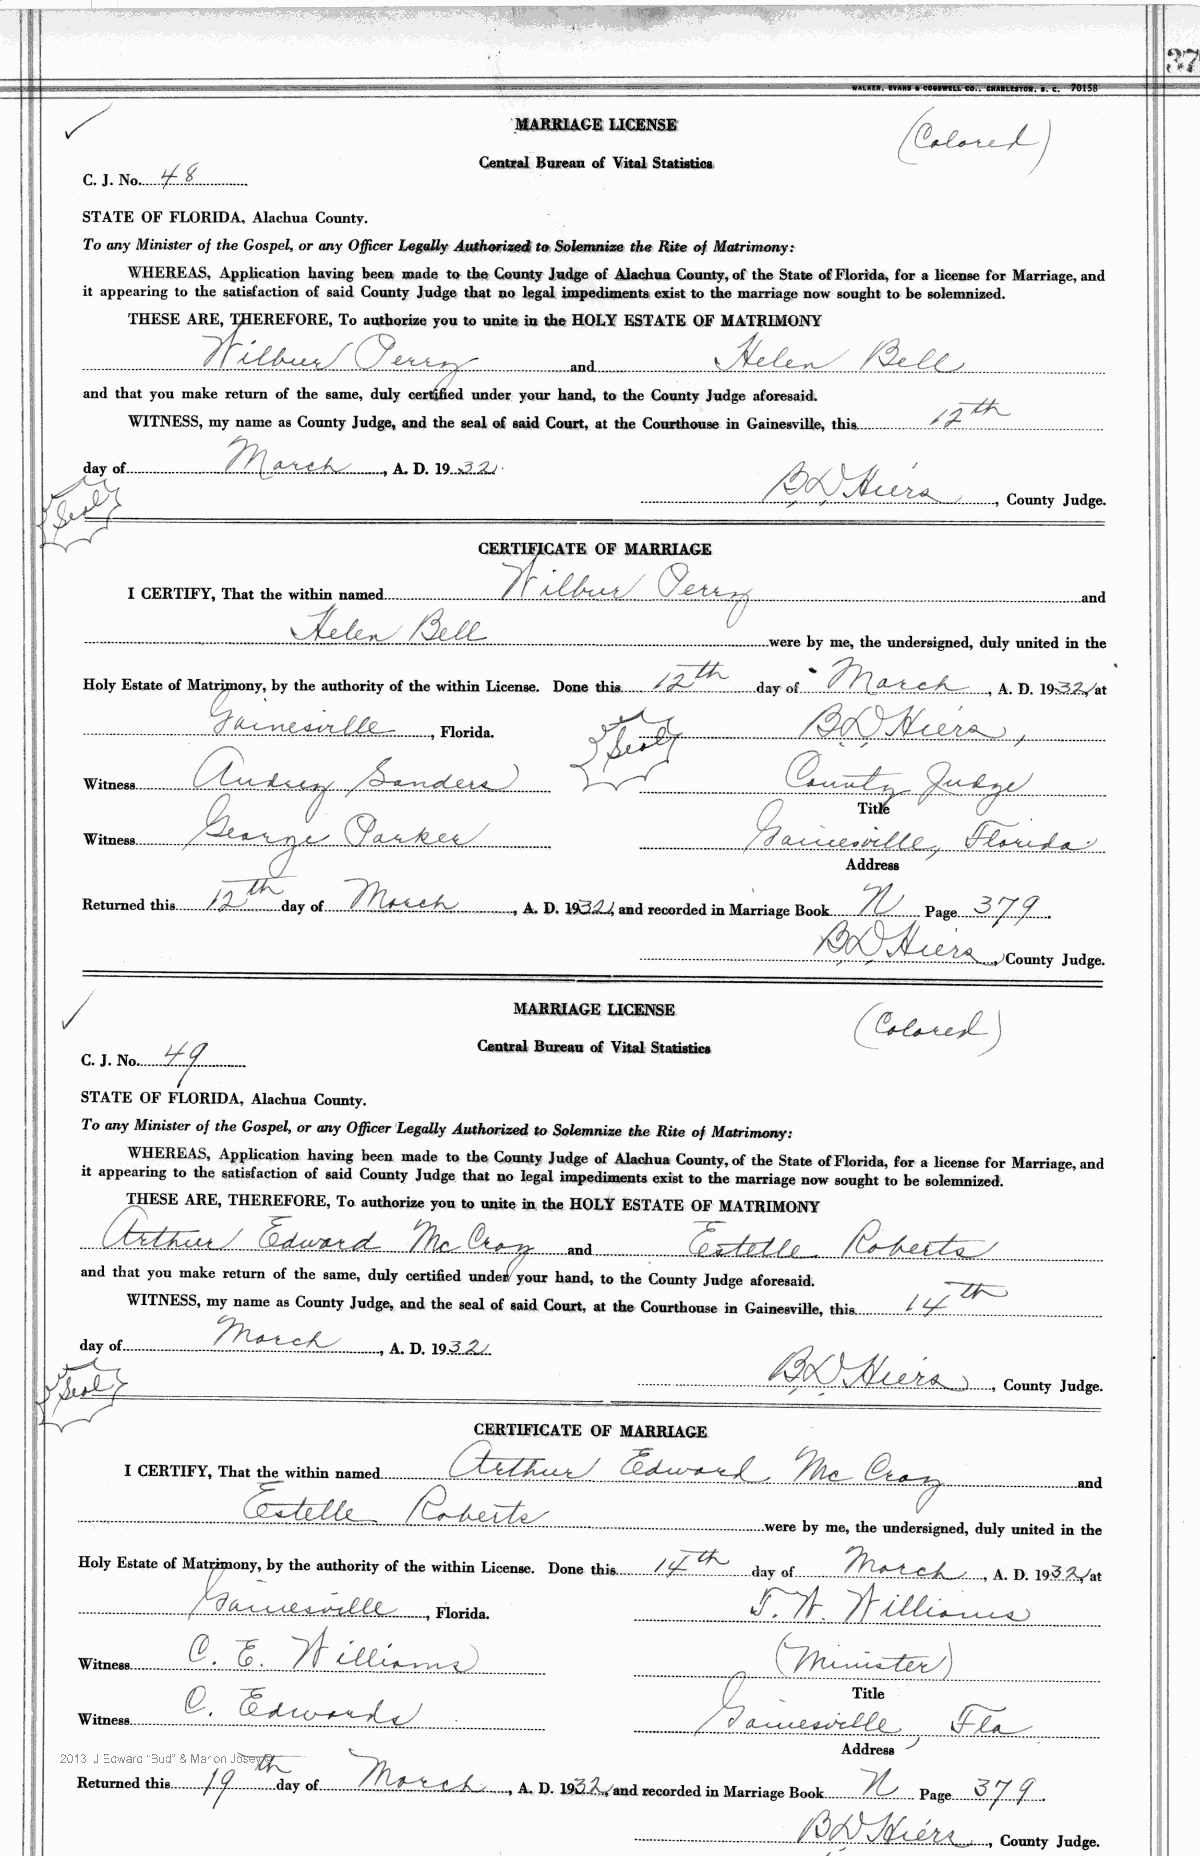 37
WALKER, EVANS & COGSWELL CO., CHARLESTON, S. C. 70158
MARRIAGE LICENSE (Colored)
Central Bureau of Vital Statistics
C. J. No. 48
STATE OF FLORIDA, Alachua County.
To any Minister of the Gospel, or any Officer Legally Authorized to Solemnize the Rite of Matrimony:
WHEREAS, Application having been made to the County Judge of Alachua County, of the State of Florida, for a license for Marriage, and
it appearing to the satisfaction of said County Judge that no legal impediments exist to the marriage now sought to be solemnized.
THESE ARE, THEREFORE, To authorize you to unite in the HOLY ESTATE OF MATRIMONY
Wilbur Perry and Helen Bell
and that you make return of the same, duly certified under your hand, to the County Judge aforesaid.
WITNESS, my name as County Judge, and the seal of said Court, at the Courthouse in Gainesville, this 12th
day of March, A. D. 1932.
Seal B D Hiers, County Judge.
CERTIFICATE OF MARRIAGE
I CERTIFY, That the within named Wilbur Perry and
Helen Bell were by me, the undersigned, duly united in the
Holy Estate of Matrimony, by the authority of the within License. Done this 12th day of March, A. D. 1932, at
Gainesville, Florida. Seal B D Hiers,
Witness Audrey Sanders County Judge
Title
Witness George Parker Gainesville, Florida
Address
Returned this 12th day of March, A. D. 1932, and recorded in Marriage Book N Page 379.
B D Hiers, County Judge.
MARRIAGE LICENSE (Colored)
Central Bureau of Vital Statistics
C. J. No. 49
STATE OF FLORIDA, Alachua County.
To any Minister of the Gospel, or any Officer Legally Authorized to Solemnize the Rite of Matrimony:
WHEREAS, Application having been made to the County Judge of Alachua County, of the State of Florida, for a license for Marriage, and
it appearing to the satisfaction of said County Judge that no legal impediments exist to the marriage now sought to be solemnized.
THESE ARE, THEREFORE, To authorize you to unite in the HOLY ESTATE OF MATRIMONY
Arthur Edward McCroy and Estelle Roberts
and that you make return of the same, duly certified under your hand, to the County Judge aforesaid.
WITNESS, my name as County Judge, and the seal of said Court, at the Courthouse in Gainesville, this 14th
day of March, A. D. 1932.
Seal B D Hiers, County Judge.
CERTIFICATE OF MARRIAGE
I CERTIFY, That the within named Arthur Edward McCroy and
Estelle Roberts were by me, the undersigned, duly united in the
Holy Estate of Matrimony, by the authority of the within License. Done this 14th day of March, A. D. 1932, at
Gainesville, Florida. T. W. Williams
Witness C. E. Williams (Minister)
Title
Witness C. Edwards Gainesville, Fla
Address
2013 J Edward "Bud" & Marion Josey
Returned this 19th day of March, A. D. 1932, and recorded in Marriage Book N Page 379.
B D Hiers, County Judge.